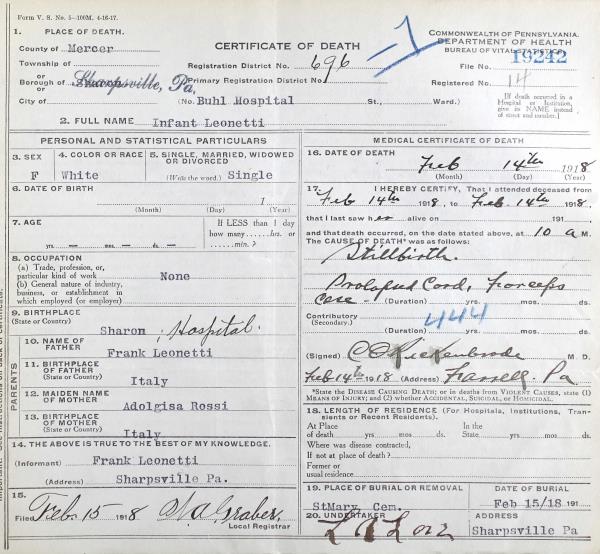 Form V. S. No. 5—100M. 4-16-17.
1. PLACE OF DEATH.
County of Mercer
Township of
or
Borough of Sharpsville, Pa,
or
City of
CERTIFICATE OF DEATH
Registration District No. 696
Primary Registration District No
(No. Buhl Hospital St., Ward.)
-1
COMMONWEALTH OF PENNSYLVANIA.
DEPARTMENT OF HEALTH
BUREAU OF VITAL STATISTICS
File No. 19242
Registered No. 14
[If death occurred in a
Hospital or Institution,
give its NAME instead
of street and number.]
2. FULL NAME Infant Leonetti
PERSONAL AND STATISTICAL PARTICULARS
3. SEX
F
4. COLOR OR RACE
White
5. SINGLE, MARRIED, WIDOWED
OR DIVORCED
(Write the word.) Single
6. DATE OF BIRTH
1
(Month) (Day) (Year)
7. AGE
yrs. mos. ds.
If LESS than 1 day
how many hrs. or
min.?
8. OCCUPATION
(a) Trade, profession, or,
particular kind of work
None
(b) General nature of industry,
business, or establishment in
which employed (or employer)
9. BIRTHPLACE
(State or Country)
Sharon, Hospital.
PARENTS
10. NAME OF
FATHER
Frank Leonetti
11. BIRTHPLACE
OF FATHER
(State or Country)
Italy
12. MAIDEN NAME
OF MOTHER
Adolgisa Rossi
13. BIRTHPLACE
OF MOTHER
(State or Country)
Italy
14. THE ABOVE IS TRUE TO THE BEST OF MY KNOWLEDGE.
(Informant) Frank Leonetti
(Address) Sharpsville Pa.
15.
Filed Feb. 15 - 1918 Graber
Local Registrar
MEDICAL CERTIFICATE OF DEATH
16. DATE OF DEATH
Feb 14th 1918
(Month) (Day) (Year)
17. I HEREBY CERTIFY, That I attended deceased from
Feb 14th 1918, to Feb. 14th 1918,
that I last saw her alive on 191
and that death occurred, on the date stated above, at 10 a M.
The CAUSE OF DEATH* was as follows:
Stillbirth
Prolapsed Cord, Forceps
Case (Duration) yrs. mos. ds.
Contributory 444
(Secondary.)
(Duration) yrs. mos. ds.
(Signed) M. D.
Feb 14th 1918 (Address) Farrell Pa
*State the DISEASE CAUSING DEATH; or in deaths from VIOLENT CAUSES, state (1)
MEANS OF INJURY; and (2) whether ACCIDENTAL, SUICIDAL, or HOMICIDAL.
18. LENGTH OF RESIDENCE (For Hospitals, Institutions, Tran-
sients or Recent Residents).
At Place
of death yrs. mos. ds.
In the
State yrs. mos. ds.
Where was disease contracted,
If not at place of death?
Former or
usual residence
19. PLACE OF BURIAL OR REMOVAL
StMary, Cem.
DATE OF BURIAL
Feb 15/18 191
20. UNDERTAKER
ADDRESS
Sharpsville Pa